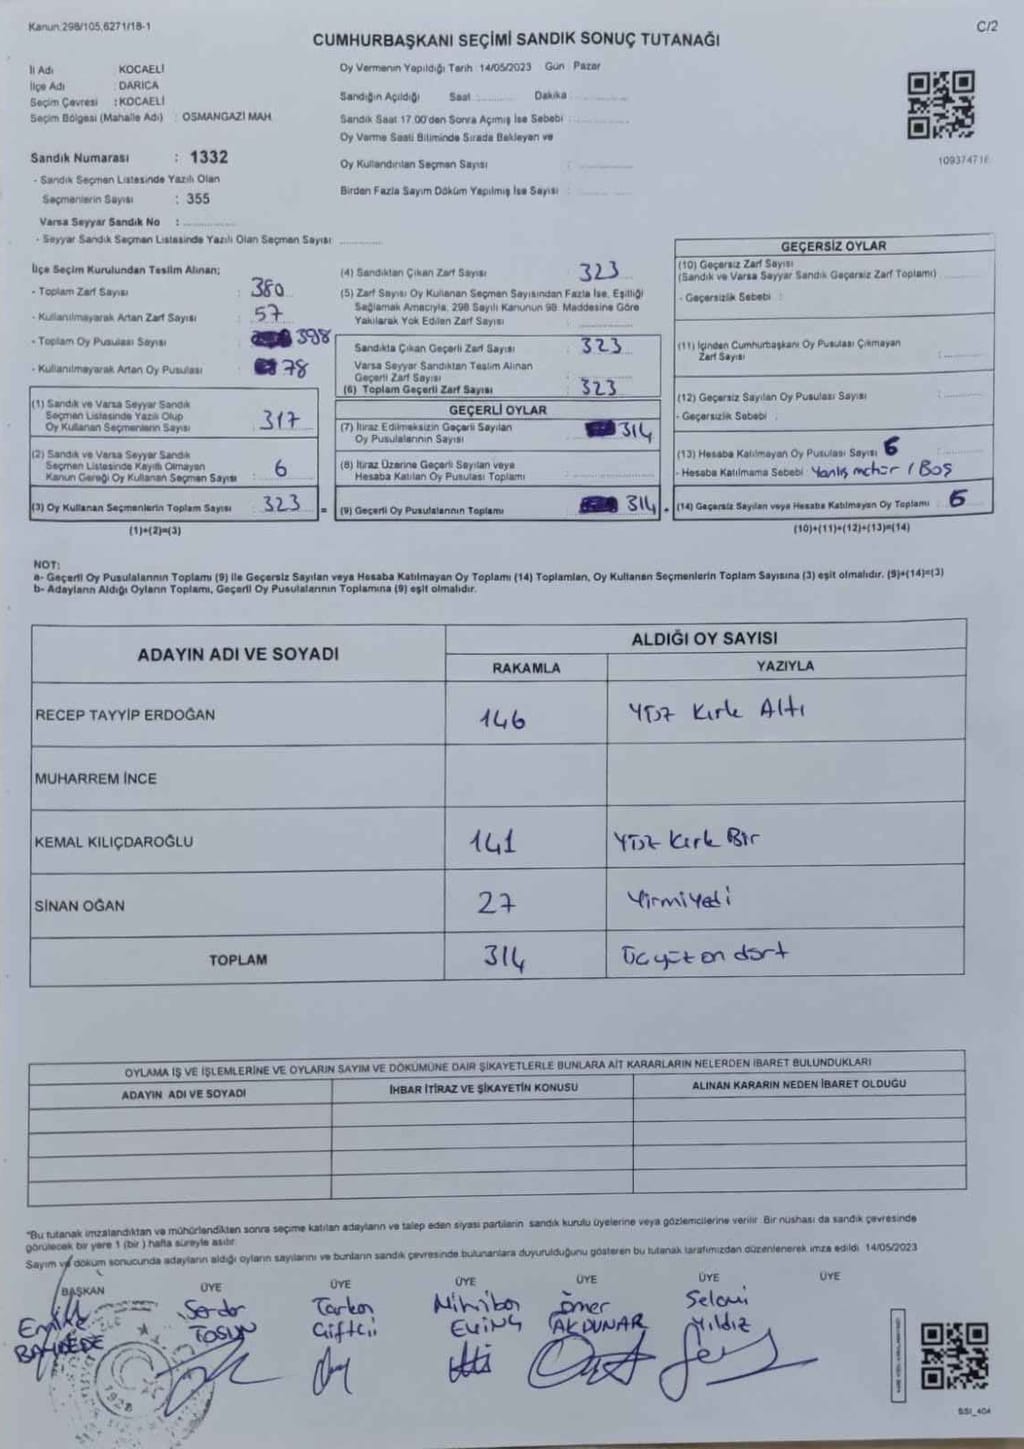 Kanun:298/105,6271/18-1
C/2
CUMHURBAŞKANI SEÇİMİ SANDIK SONUÇ TUTANAĞI
İl Adı : KOCAELİ
İlçe Adı : DARICA
Seçim Çevresi : KOCAELİ
Seçim Bölgesi (Mahalle Adı) : OSMANGAZİ MAH.
Sandık Numarası : 1332
- Sandık Seçmen Listesinde Yazılı Olan
Seçmenlerin Sayısı : 355
Varsa Seyyar Sandık No :
- Seyyar Sandık Seçmen Listesinde Yazılı Olan Seçmen Sayısı
Oy Vermenin Yapıldığı Tarih : 14/05/2023 Gün : Pazar
Sandığın Açıldığı Saat : Dakika :
Sandık Saat 17.00'den Sonra Açımış İse Sebebi :
Oy Verme Saati Bitiminde Sırada Bekleyen ve
Oy Kullandırılan Seçmen Sayısı :
Birden Fazla Sayım Döküm Yapılmış İse Sayısı :
İlçe Seçim Kurulundan Teslim Alınan;
- Toplam Zarf Sayısı : 380
- Kullanılmayarak Artan Zarf Sayısı : 57
- Toplam Oy Pusulası Sayısı : 398
- Kullanılmayarak Artan Oy Pusulası : 78
(1) Sandık ve Varsa Seyyar Sandık
Seçmen Listesinde Yazılı Olup
Oy Kullanan Seçmenlerin Sayısı : 317
(2) Sandık ve Varsa Seyyar Sandık
Seçmen Listesinde Kayıtlı Olmayan
Kanun Gereği Oy Kullanan Seçmen Sayısı : 6
(3) Oy Kullanan Seçmenlerin Toplam Sayısı : 323 =
(1)+(2)=(3)
(4) Sandıktan Çıkan Zarf Sayısı : 323
(5) Zarf Sayısı Oy Kullanan Seçmen Sayısından Fazla İse, Eşitliği
Sağlamak Amacıyla, 298 Sayılı Kanunun 98. Maddesine Göre
Yakılarak Yok Edilen Zarf Sayısı :
Sandıkta Çıkan Geçerli Zarf Sayısı : 323
Varsa Seyyar Sandıktan Teslim Alınan
Geçerli Zarf Sayısı :
(6) Toplam Geçerli Zarf Sayısı : 323
GEÇERLİ OYLAR
(7) İtiraz Edilmeksizin Geçerli Sayılan
Oy Pusulalarının Sayısı : 314
(8) İtiraz Üzerine Geçerli Sayılan veya
Hesaba Katılan Oy Pusulası Toplamı :
(9) Geçerli Oy Pusulalarının Toplamı : 314 +
GEÇERSİZ OYLAR
(10) Geçersiz Zarf Sayısı
(Sandık ve Varsa Seyyar Sandık Geçersiz Zarf Toplamı)
- Geçersizlik Sebebi :
(11) İçinden Cumhurbaşkanı Oy Pusulası Çıkmayan
Zarf Sayısı :
(12) Geçersiz Sayılan Oy Pusulası Sayısı :
- Geçersizlik Sebebi :
(13) Hesaba Katılmayan Oy Pusulası Sayısı : 6
- Hesaba Katılmama Sebebi : Yanlış mühür / Boş
(14) Geçersiz Sayılan veya Hesaba Katılmayan Oy Toplamı : 6
(10)+(11)+(12)+(13)=(14)
NOT:
a- Geçerli Oy Pusulalarının Toplamı (9) ile Geçersiz Sayılan veya Hesaba Katılmayan Oy Toplamı (14) Toplamları, Oy Kullanan Seçmenlerin Toplam Sayısına (3) eşit olmalıdır. (9)+(14)=(3)
b- Adayların Aldığı Oyların Toplamı, Geçerli Oy Pusulalarının Toplamına (9) eşit olmalıdır.
ADAYIN ADI VE SOYADI
ALDIĞI OY SAYISI
RAKAMLA YAZIYLA
RECEP TAYYİP ERDOĞAN 146 Yüz Kırk Altı
MUHARREM İNCE
KEMAL KILIÇDAROĞLU 141 Yüz Kırk Bir
SİNAN OĞAN 27 Yirmiyedi
TOPLAM 314 Üçyüz on dört
OYLAMA İŞ VE İŞLEMLERİNE VE OYLARIN SAYIM VE DÖKÜMÜNE DAİR ŞİKAYETLERLE BUNLARA AİT KARARLARIN NELERDEN İBARET BULUNDUKLARI
ADAYIN ADI VE SOYADI İHBAR İTİRAZ VE ŞİKAYETİN KONUSU ALINAN KARARIN NEDEN İBARET OLDUĞU
"Bu tutanak imzalandıktan ve mühürlendikten sonra seçime katılan adayların ve talep eden siyasi partilerin sandık kurulu üyelerine veya gözlemcilerine verilir. Bir nushası da sandık çevresinde
görülecek bir yere 1 (bir) hafta süreyle asılır.
Sayım ve döküm sonucunda adayların aldığı oyların sayılarını ve bunların sandık çevresinde bulunanlara duyurulduğunu gösteren bu tutanak tarafımızdan düzenlenerek imza edildi. 14/05/2023
BAŞKAN ÜYE ÜYE ÜYE ÜYE ÜYE ÜYE
Serdar Tarkan Ömer Selami
TOSUN Çiftçi AKDUNAR Yıldız
1928